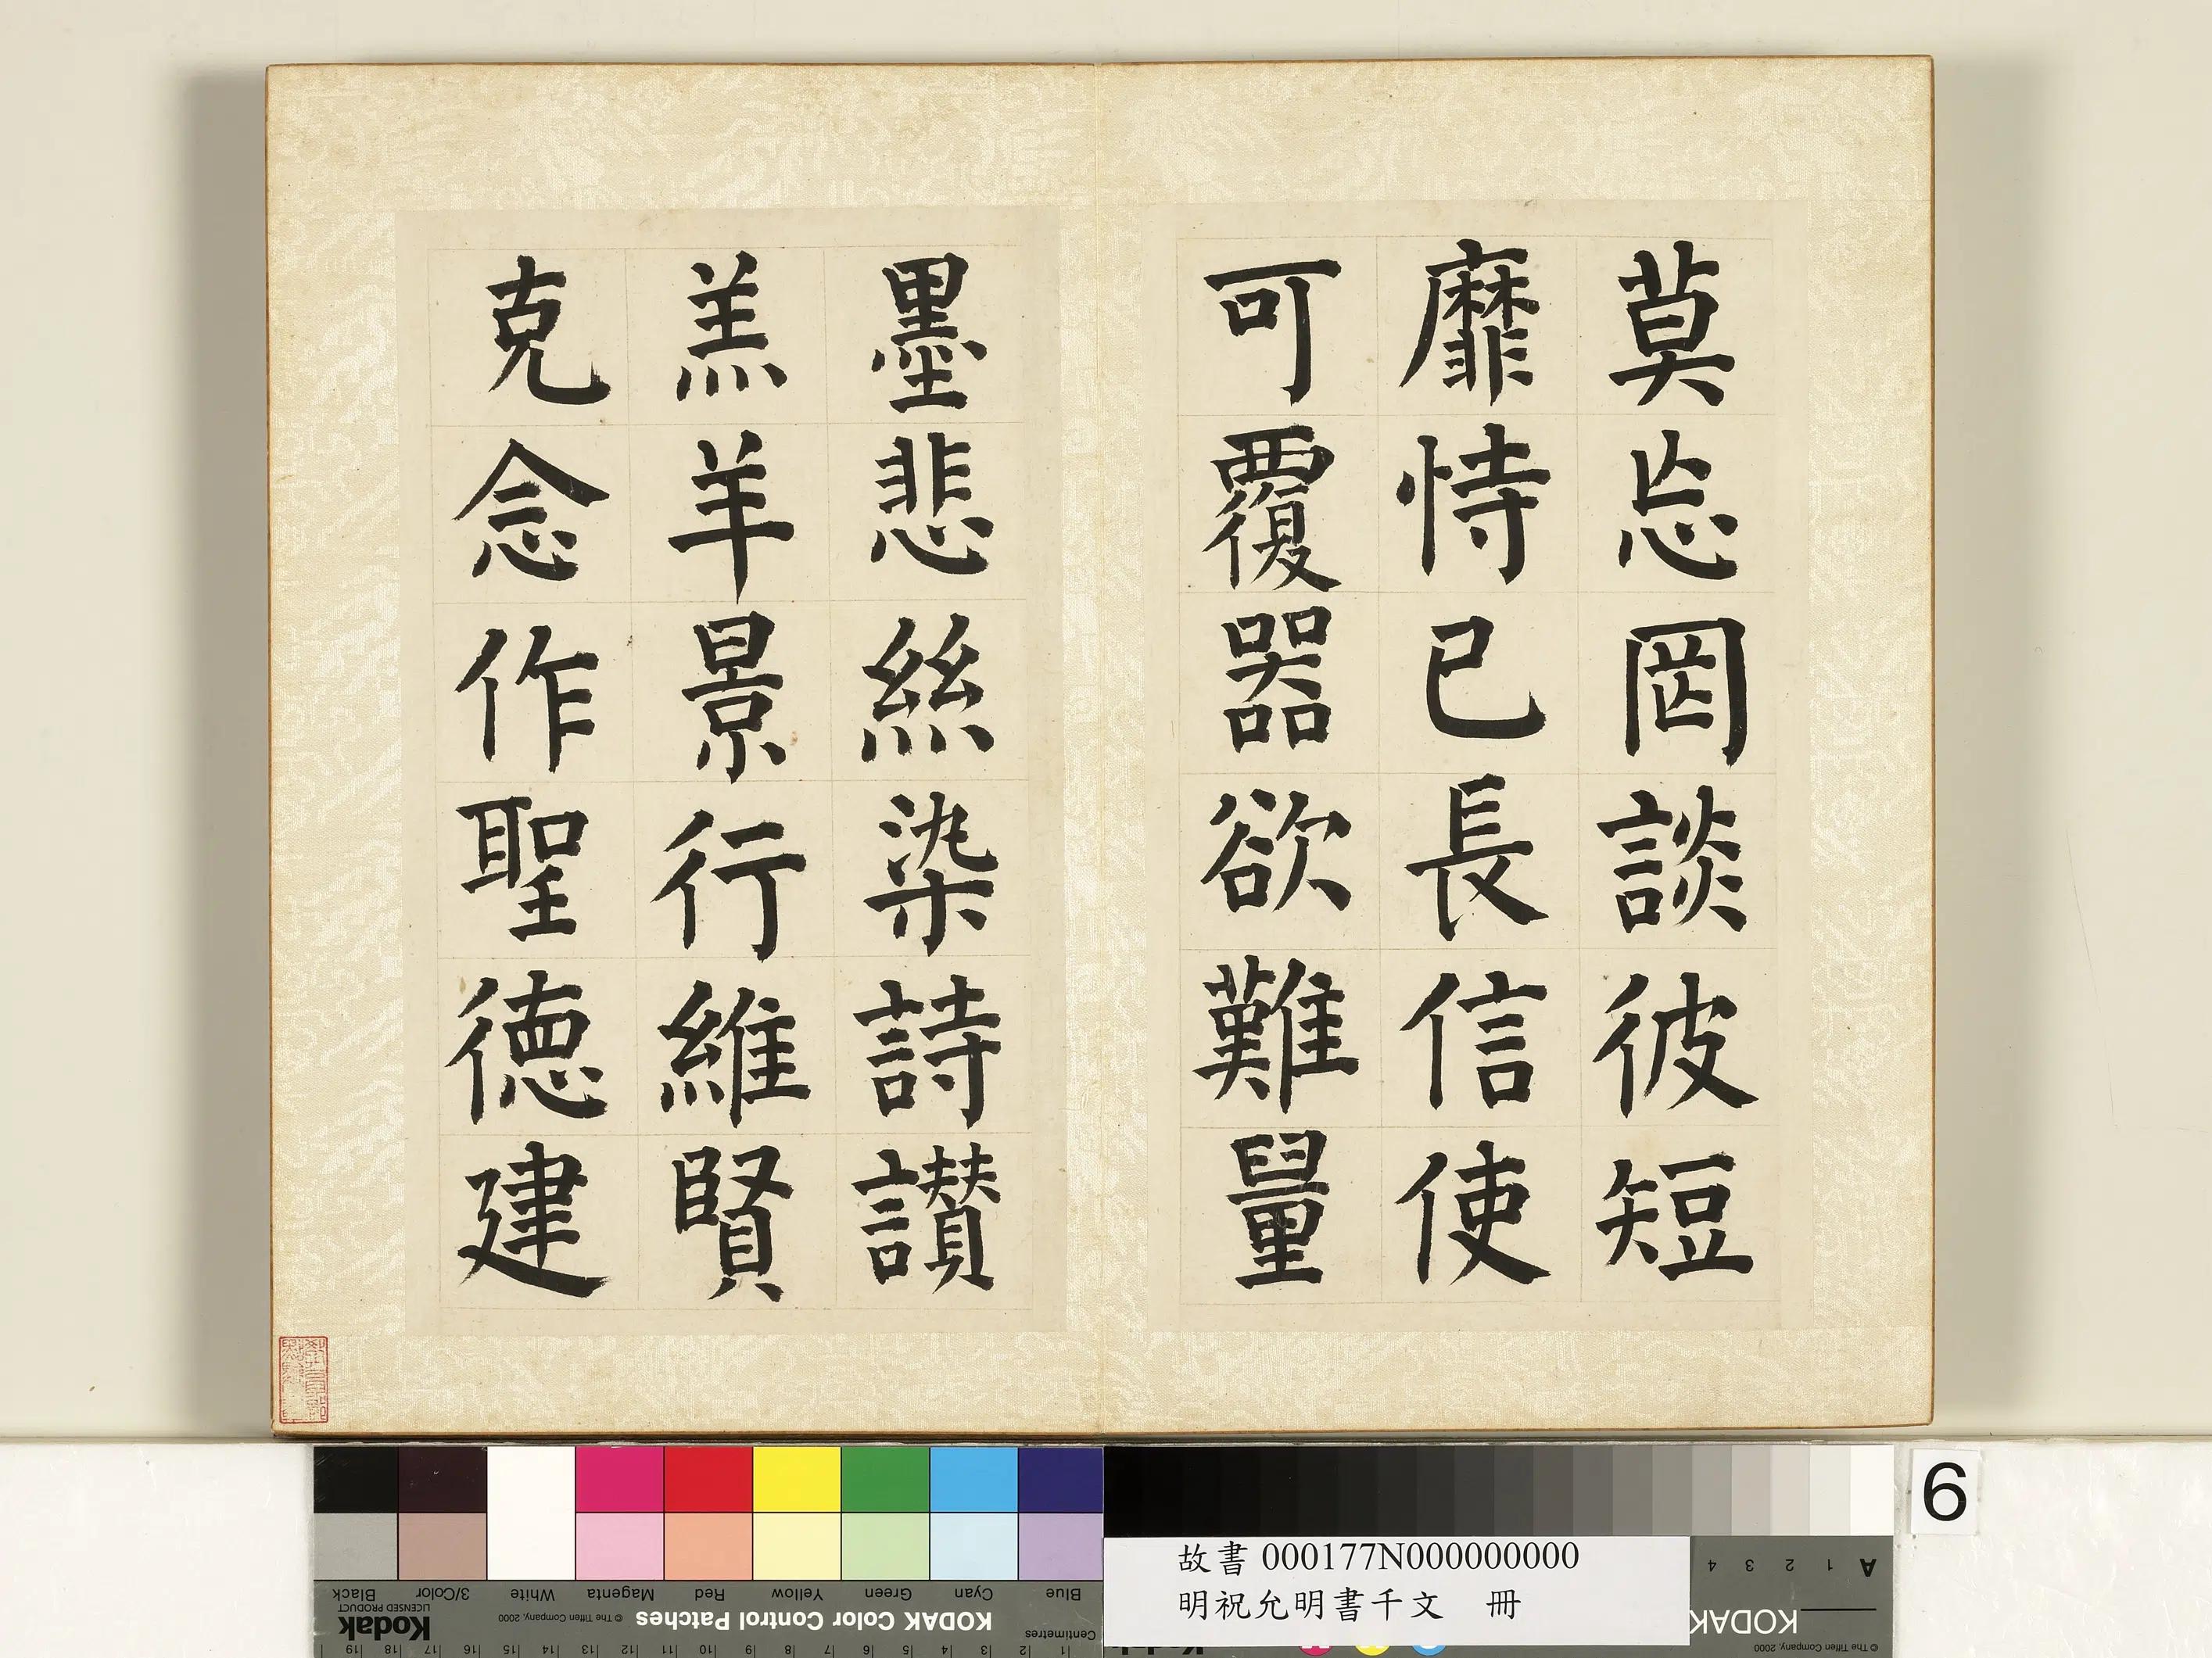 莫忘罔談彼短
靡恃已長信使
可覆器欲難量
墨悲絲染詩讃
羔羊景行維賢
克念作聖徳建
6
故書 000177N000000000
明祝允明書千文 冊
KODAK Color Control Patches
© The Tiffen Company, 2000
Kodak
LICENSED PRODUCT
Blue Cyan Green Yellow Red Magenta White 3/Color Black
Centimetres 1 2 3 4 5 6 7 8 9 10 11 12 13 14 15 16 17 18 19
KODAK
© The Tiffen Company, 2000
A 1 2 3 4